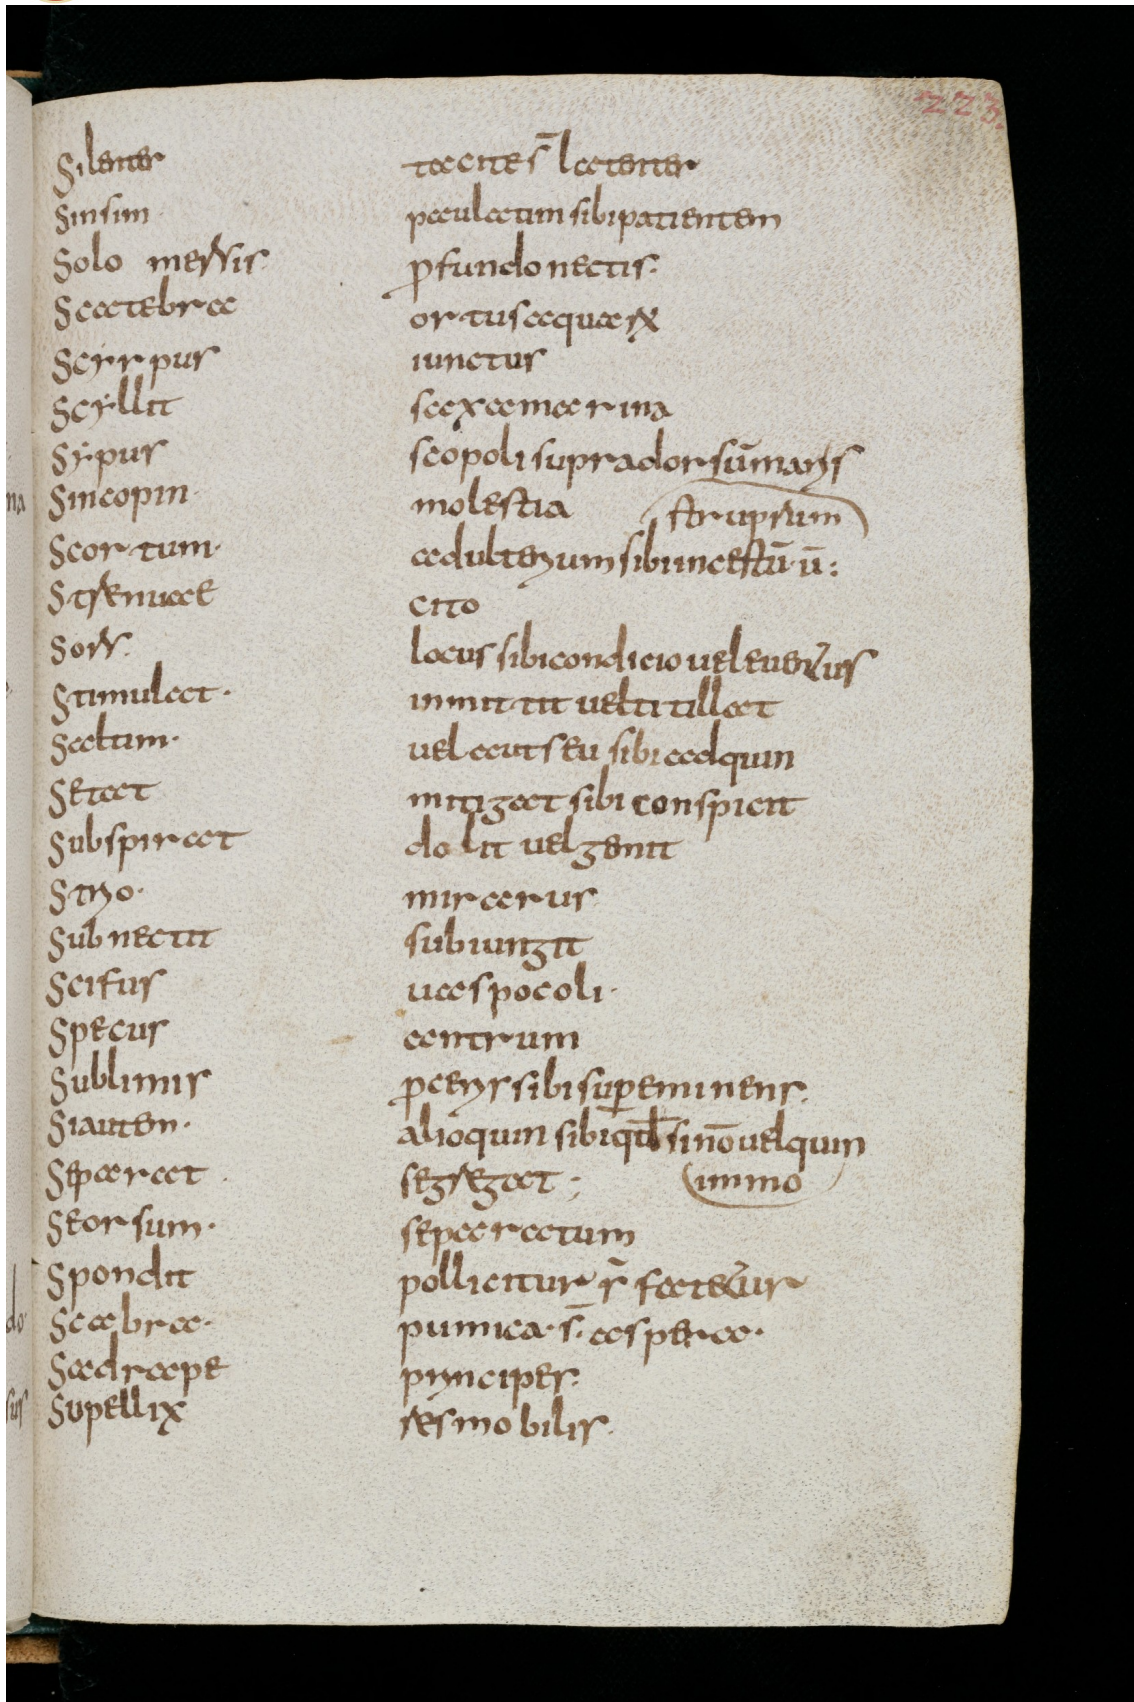 223.
Silenter tacite s̄ latenter
Sinsim paulatim sibi patientem
Solo mersis p̱fundo nectis.
Scatebra ortus aquarum
Scyrpus iunctus
Scylla saxa marina
Sypus scopoli supra dorsū maris
Sincopin molestia
Scortum. adulterium sibi incestū ū: struprum
Strenuae cito
Sors. locus sibi condicio vel eventus
Stimulat. inmittit vel titillat
Saltim. vel aut seu sibi adquin
Setat mitigat sibi conspicit
Subspirat dolit vel gemit
Strio. mirarus
Subnectit subiungit
Scifus vas pocoli.
Specus antrum
Sublimis p̱ceris sibi sup̱eminens.
Siautem. alioquin sibi qđ si nō vel quin immo
Separat. segregat;
Seorsum. separatum
Spondit pollicitur r̄ fatetur
Scabra. pumica. s̄. aspera.
Sadrape principes.
Supellix res mobilis.